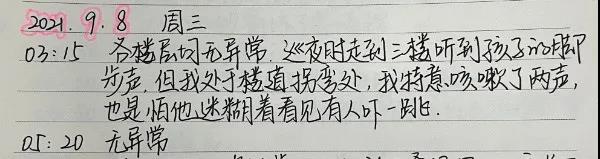 2021.9.8 周三
03:15 各楼层均无异常.巡夜时走到三楼听到孩子的脚
步声,但我处于楼道拐弯处,我特意咳嗽了两声,
也是怕他迷糊着看见有人吓一跳.
05:20 无异常